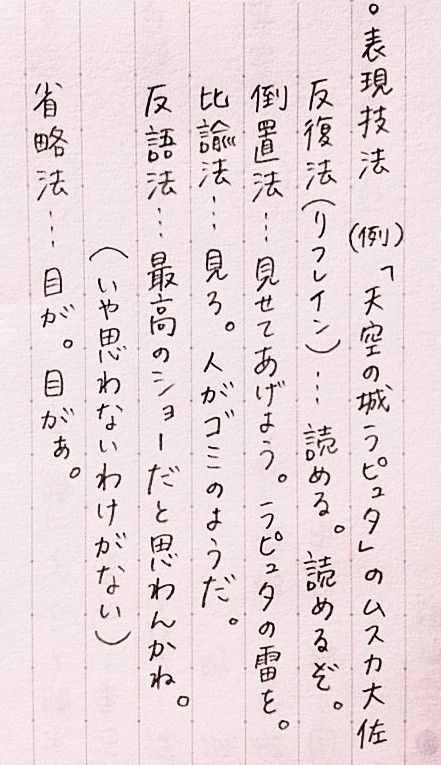 。表現技法 (例)「天空の城ラピュタ」のムスカ大佐
反復法(リフレイン)… 読める。読めるぞ。
倒置法… 見せてあげよう。ラピュタの雷を。
比諭法… 見ろ。人がゴミのようだ。
反語法… 最高のショーだと思わんかね。
(いや思わないわけがない)
省略法… 目が。目がぁ。